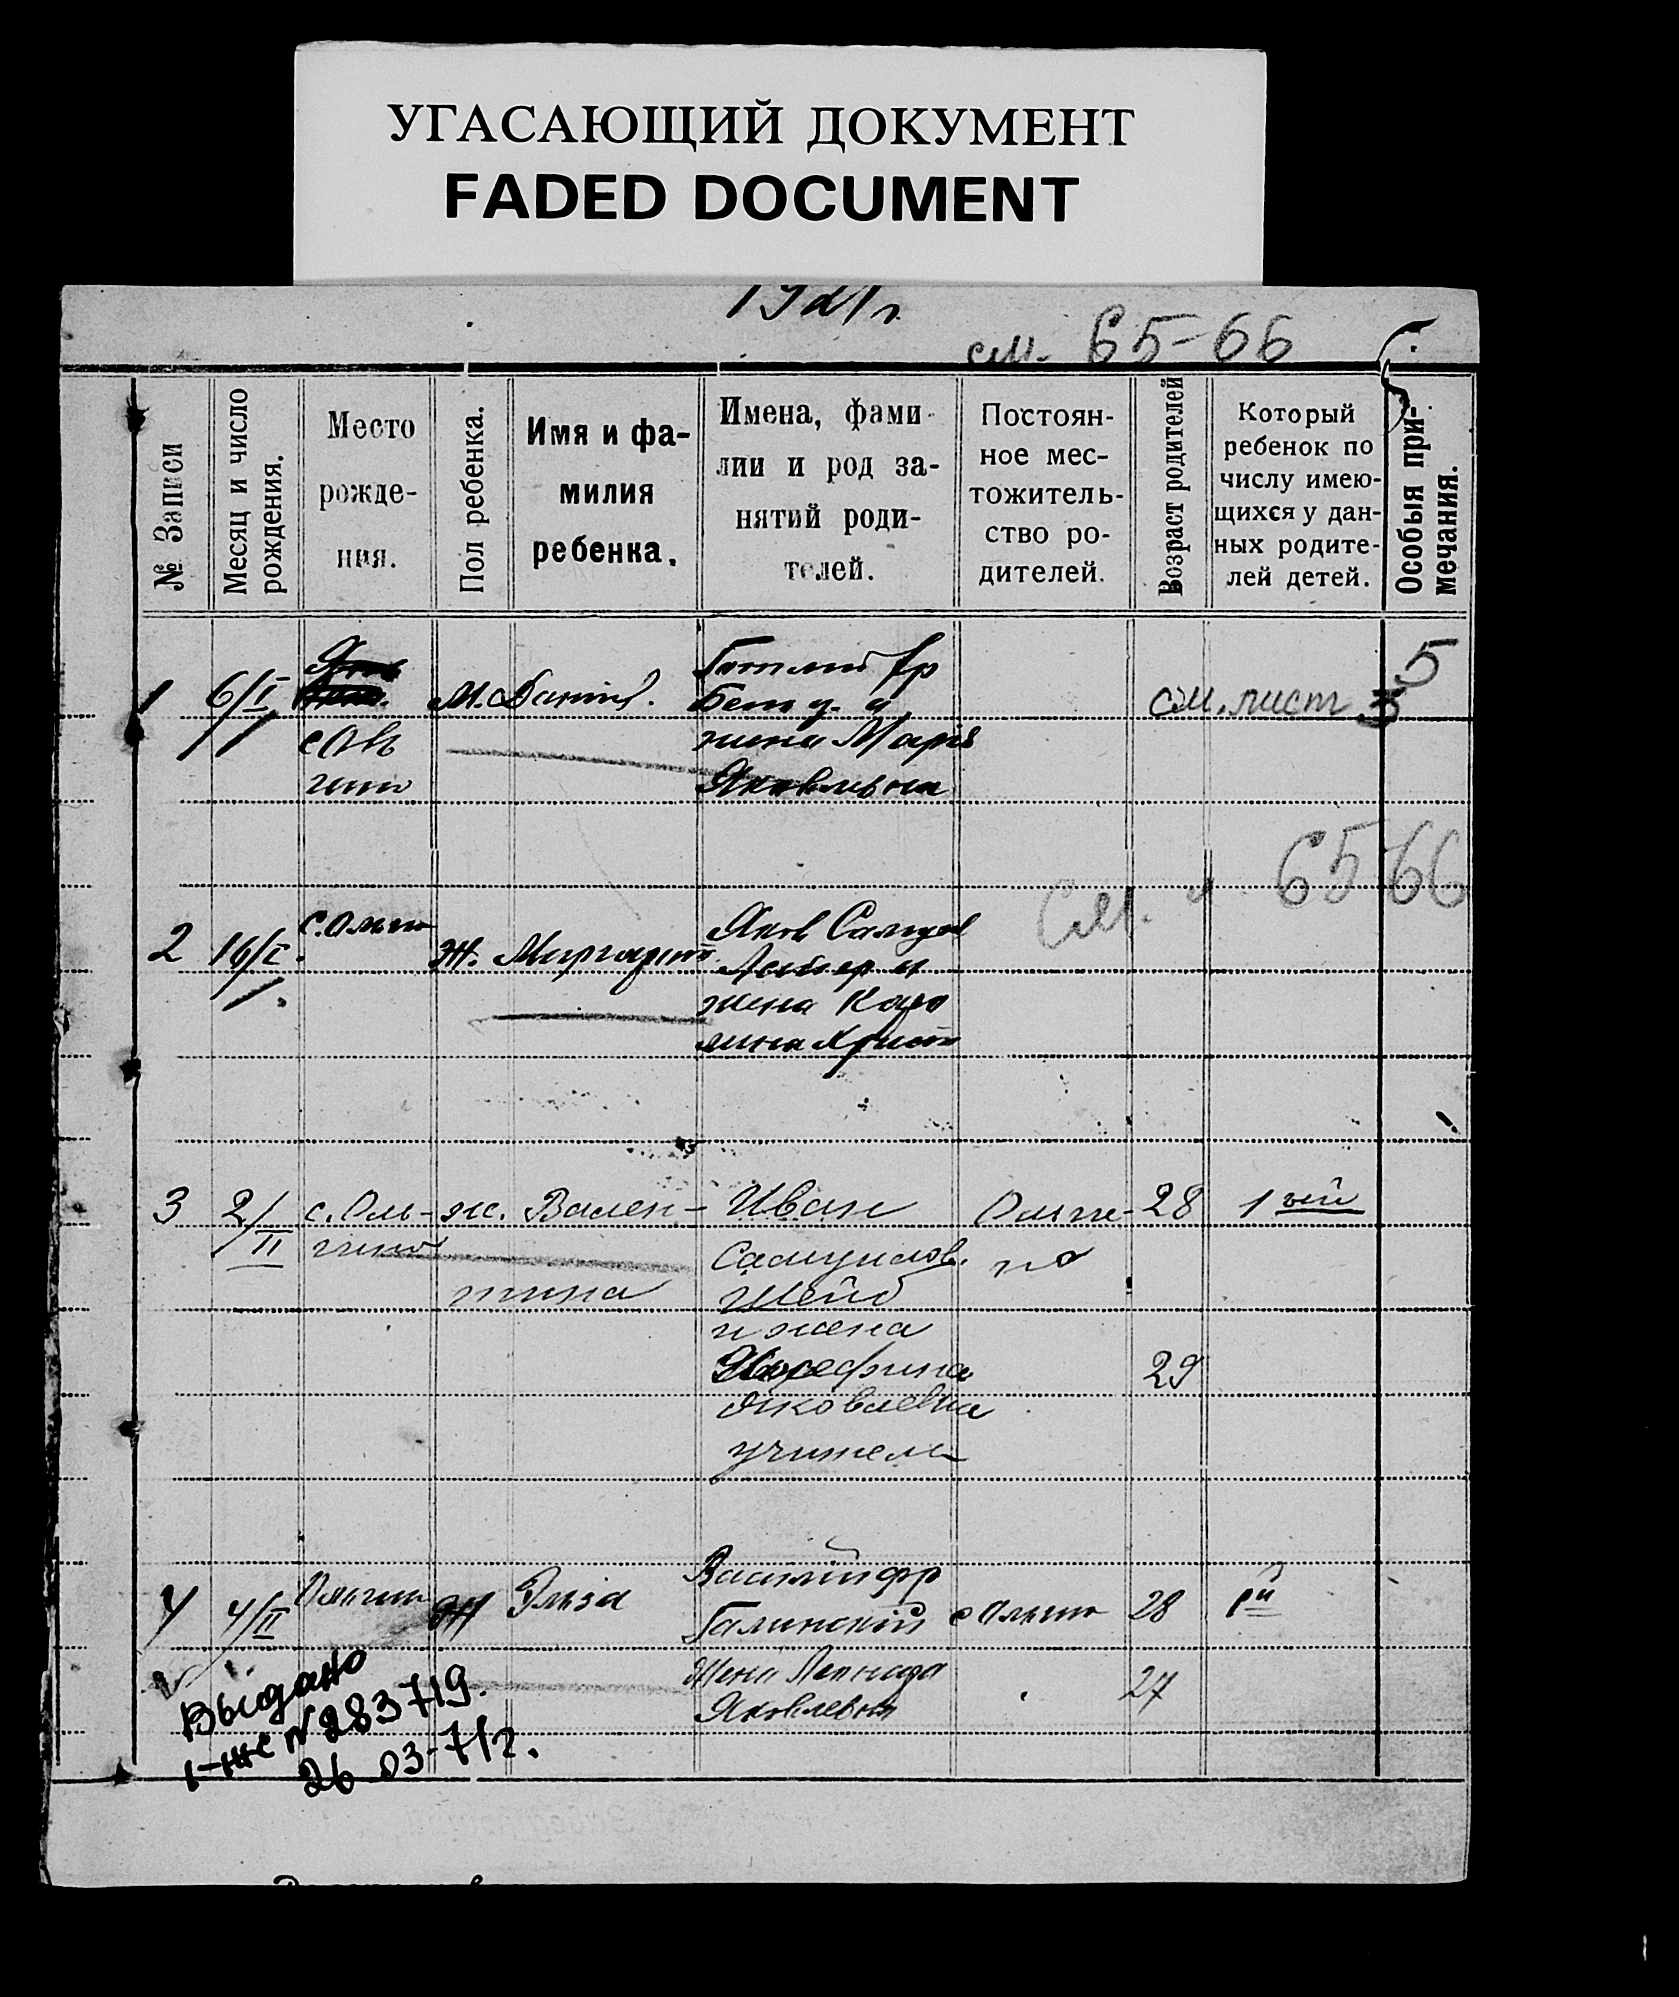 УГАСАЮЩИЙ ДОКУМЕНТ
FADED DOCUMENT
1921 г.
см. 65-66
№ Записи
Месяц и число
рождения.
Место
рожде-
ния.
Пол ребенка.
Имя и фа-
милия
ребенка.
Имена, фами-
лии и род за-
нятий роди-
телей.
Постоян-
ное мес-
тожитель-
ство ро-
дителей.
Возраст родителей
Который
ребенок по
числу имею-
щихся у дан-
ных родите-
лей детей.
Особыя при-
мечания.
5
1 6/I М. Даниил.
с Оль
гино
Готлиб Фр
и
жена Марія
Яковлевна
см. лист 5
см. 65-66
2 16/I. с. Ольгино ж. Маргарита
Яков Самуил
и
жена Каро
лина Христ
3 2/II с. Оль-
гино
ж. Вален-
тина
Иван
Самуилов.
Шейд
и жена
Жозефина
Яковлевна
учитель
Ольги-
но
28 1 ый
29
4 4/II Ольгино Ж Эльза
Василий фр
Галинский с Ольгино 28 1й
Жена
Яковлевна 27
Выдано
I-же № 283719.
26 03-71г.